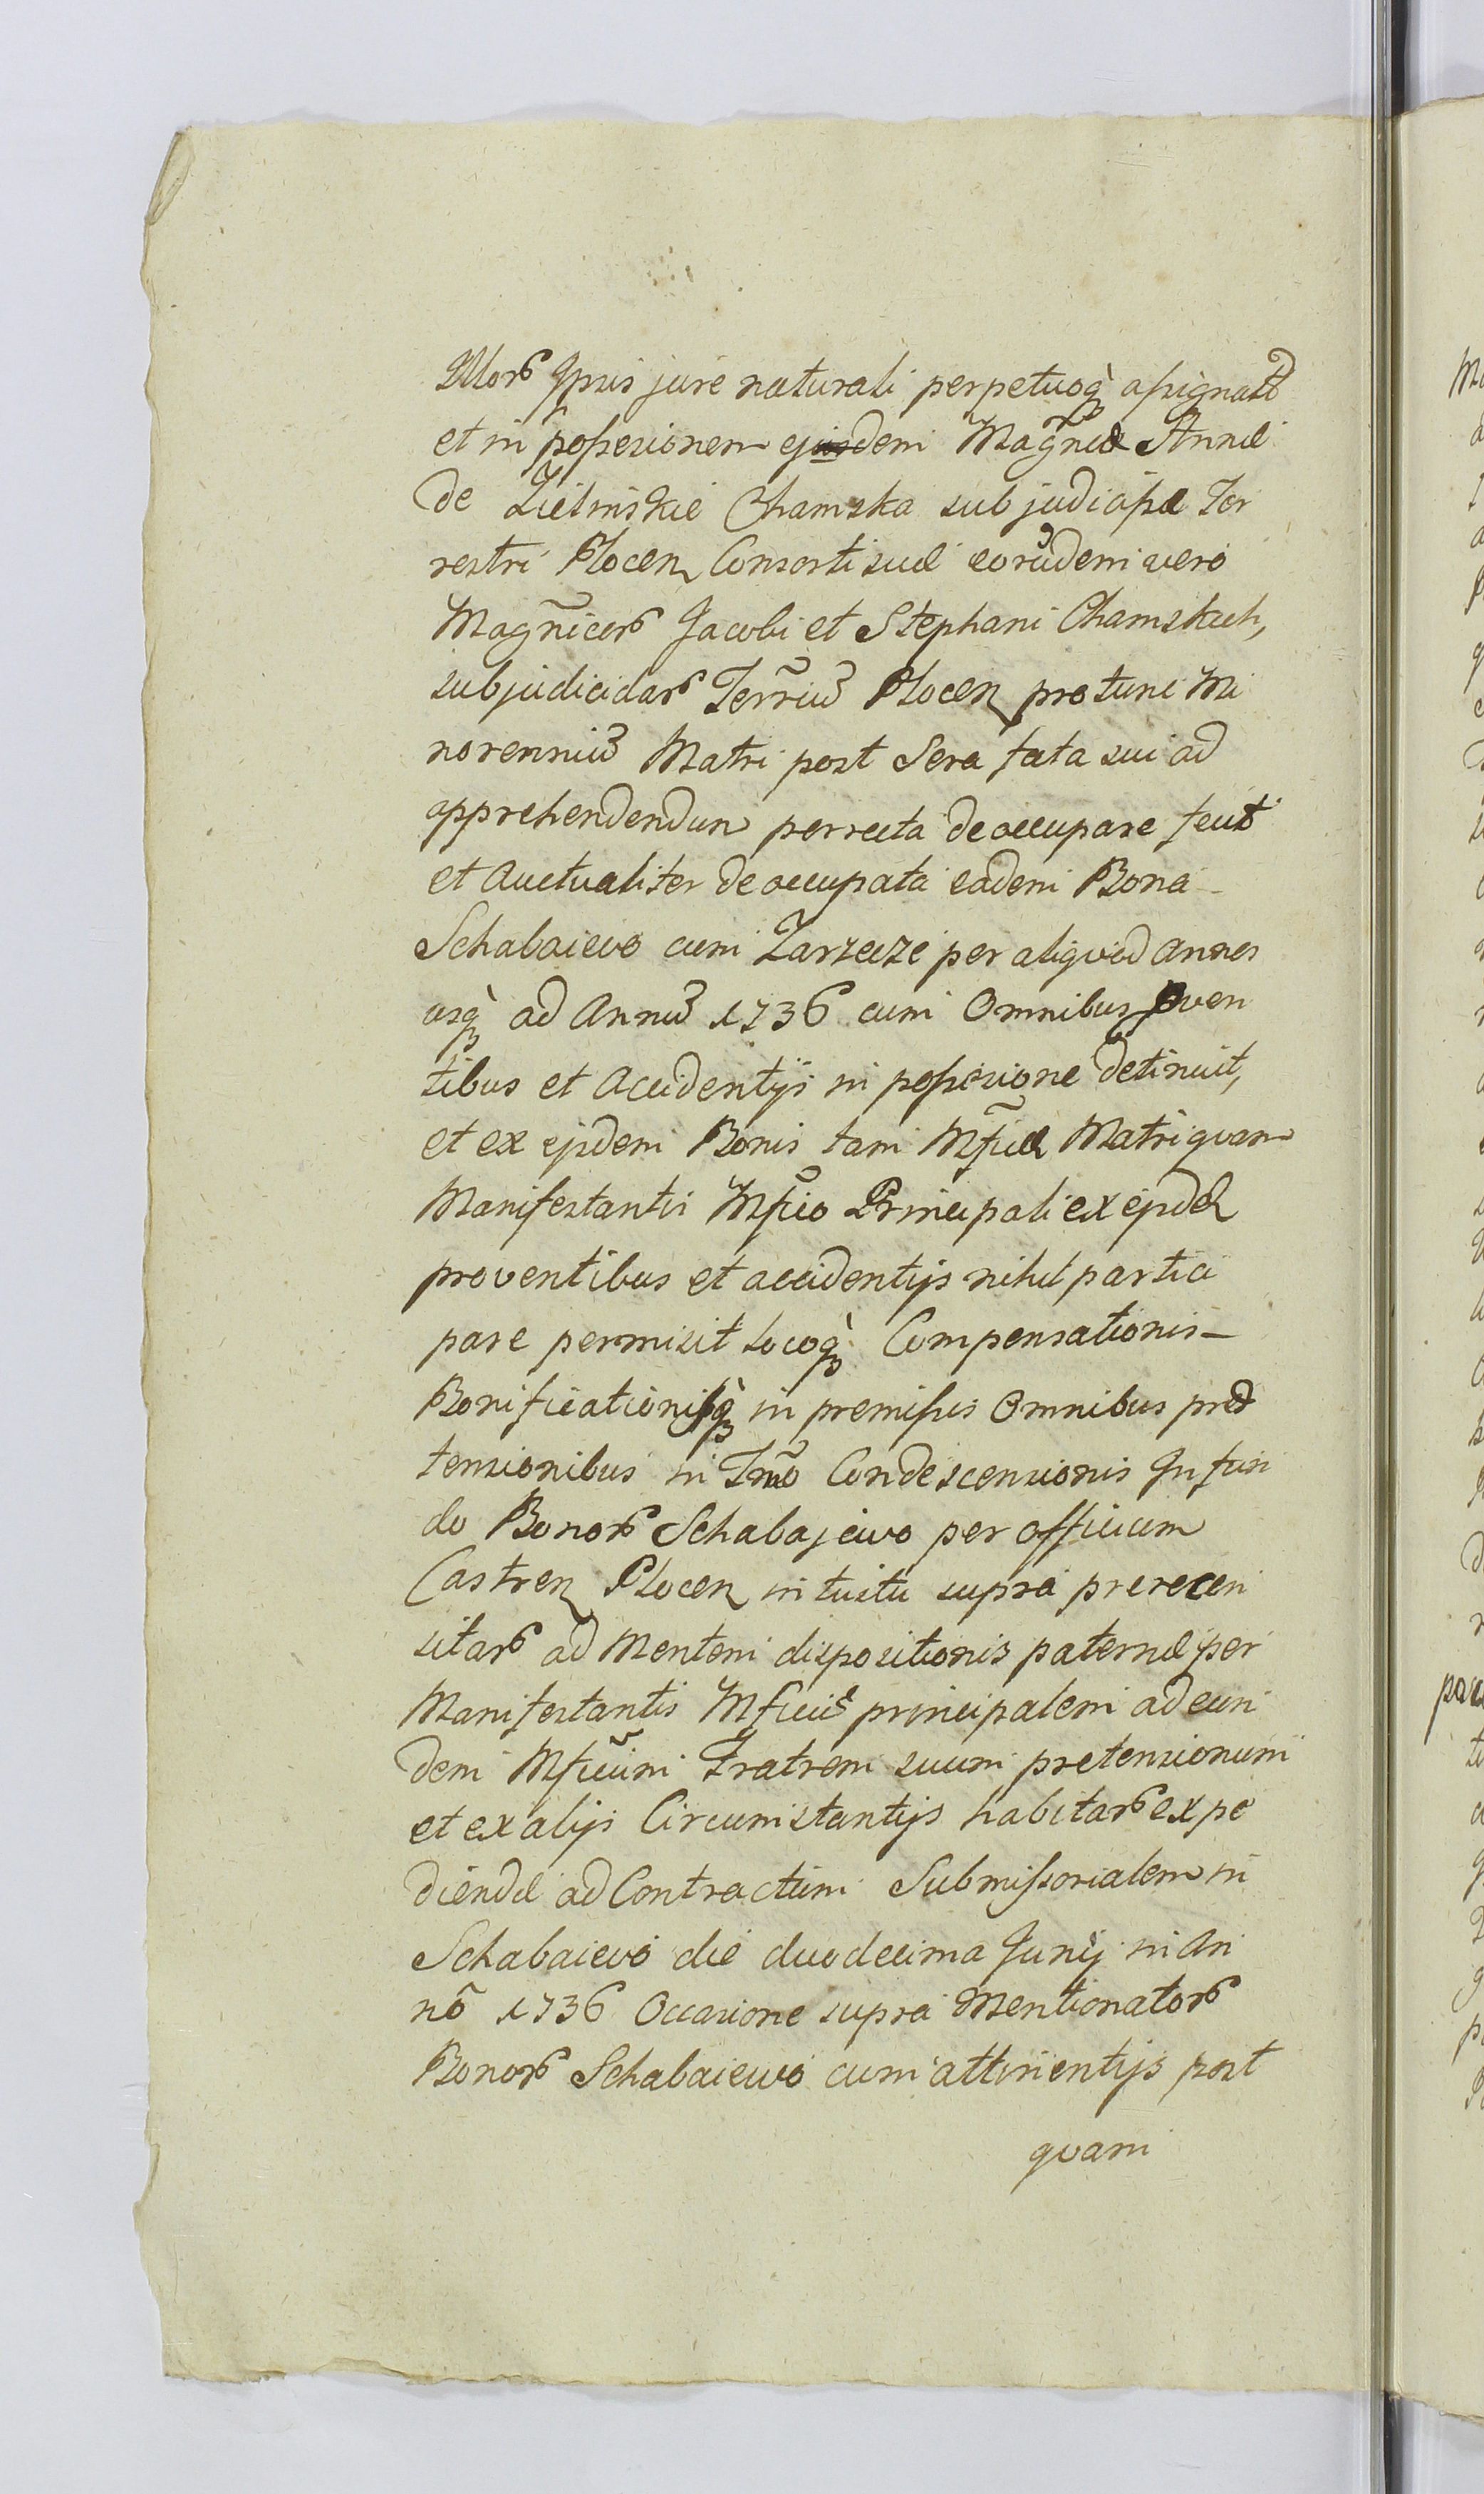 Illorũ Ipsis jure naturali perpetuoq̀ assignatũ
et in possesionem ejusdem Magñcæ Annæ
de Zielinskie Chamska subjudicissæ Ter
restri Plocen Consorti suæ eorũdem vero
Magñicorũ Jacobi et Stephani Chamskich,
subjudicidarũ Terrũ Plocen pro tunc Mi
norenniũ Matri post Sera fata sui ad
apprehendendum perrecta deoccupare fecit
et Auctualiter deoccupata eadem Bona
Schabaiewo cum Zarzecze per aliqvod annos
usq̀ ad Annũ 1736 cum Omnibus Even
tibus et Accidentijs in possesione detinuit,
et ex ejsdem Bonis tam Mfcæ Matri qvam
Manifestantis Mfico Principali ex ejsdem
proventibus et accidentijs nihil partici
pare permisit locoq̀ Compensationis
Bonificationisq̀ in premissis Omnibus præ
tensionibus in Tmõ Condescensionis In fun
do Bonorũ Schabajewo per officium
Castren Plocen intuitu supra prerecen
sitarũ ad Mentem dispositionis paternæ per
Manifestantis Mficũ principalem ad eun
dem Mficũm Fratrem suum pretensionum
et ex alijs Circumstantijs habitarũ expe
diendæ ad Contractum Submissorialem in
Schabaiewo die duodecima Junij in An
nõ 1736 Occasione supra Mentionatorũ
Bonorũ Schabaiewo cum attinentijs post
qvam